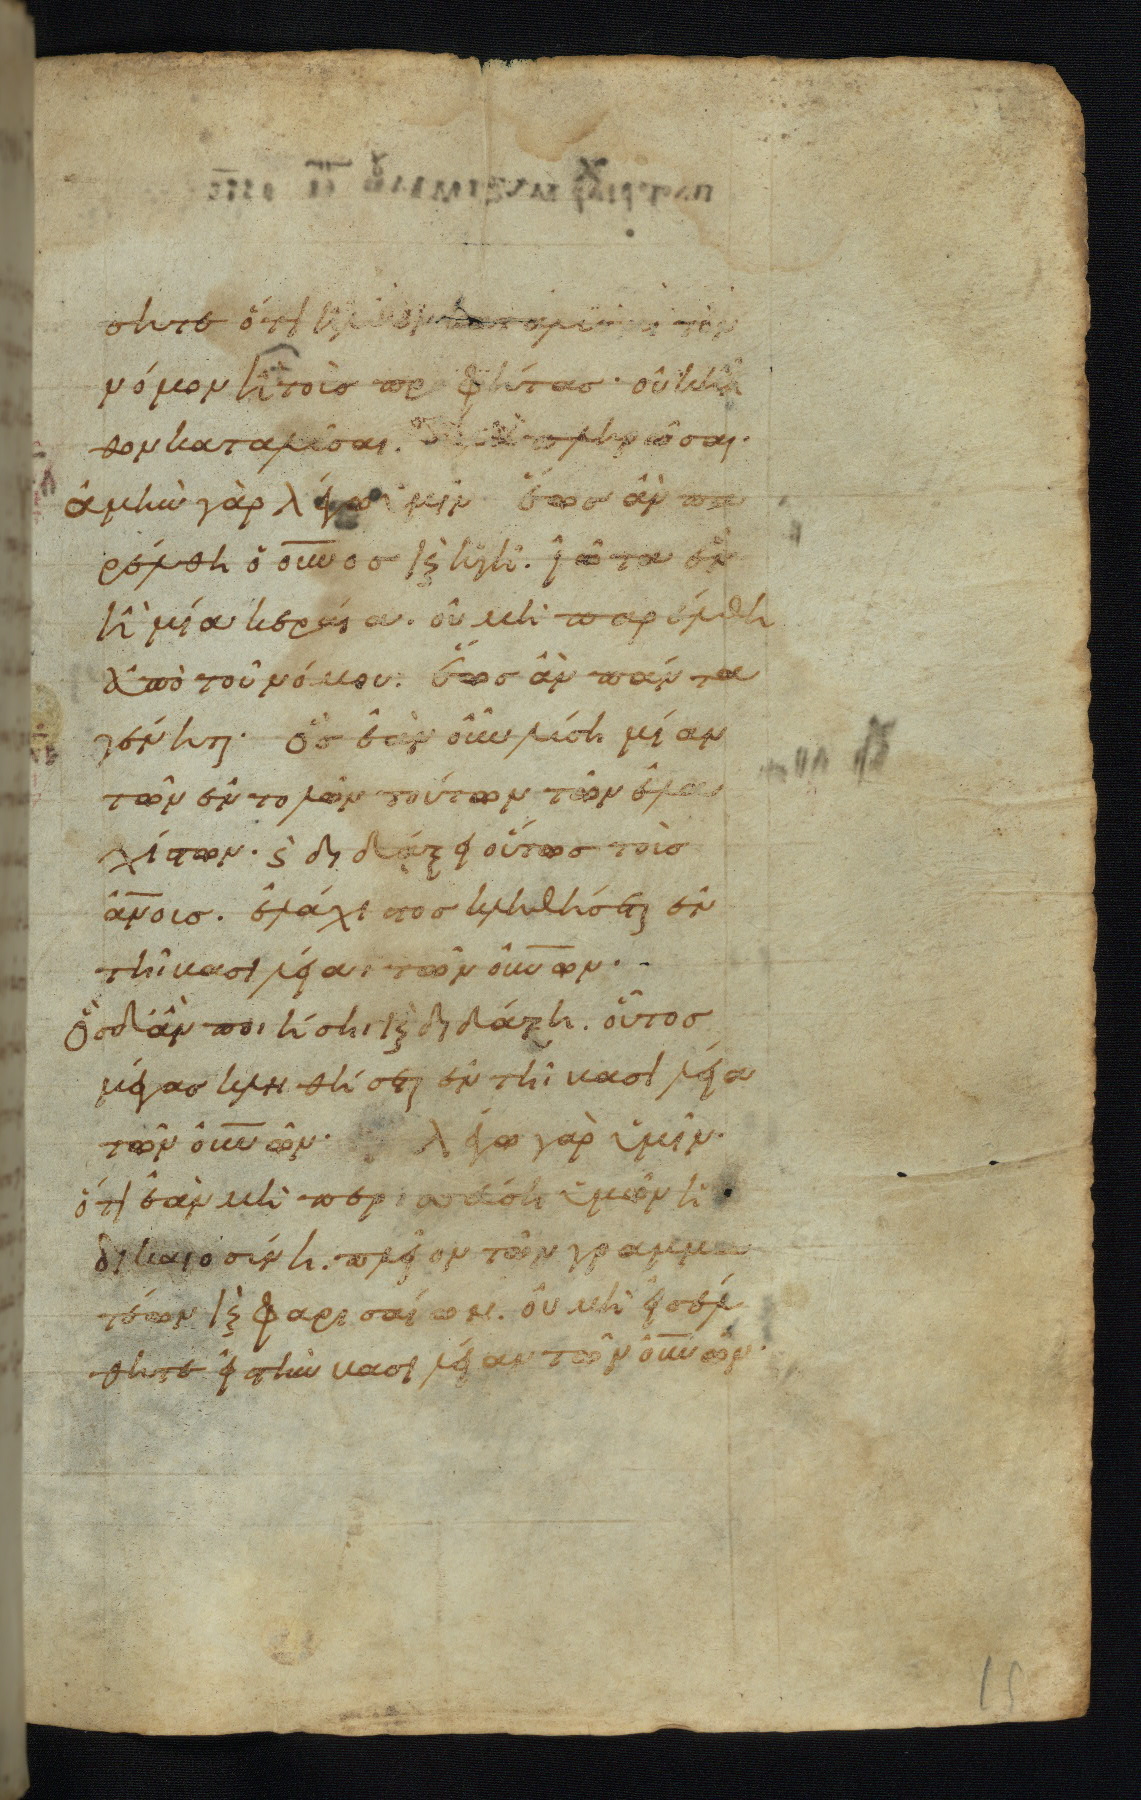 σητε ὅτι ἦλθον καταλῦσαι τὸν
νόμον ἢ τοὺς προφήτας· οὐκ ἦλ
θον καταλῦσαι. ἀλλὰ πληρῶσαι·
ἀμὴν γὰρ λέγω ὑμῖν ἕως ἂν πα
ρέλθη ὁ οὐνος καὶ ἡ γῆ. ἰῶτα ἓν
ἢ μία κεραία. οὐ μὴ παρέλθη
ἀπὸ τοῦ νόμου. ἕως ἂν πάντα
γένηται· Ὃς ἐὰν οὖν λύση μίαν
τῶν ἐντολῶν τούτων τῶν ἐλα
χίστων. καὶ διδάξει οὕτως τοὺς
ἀνοις. ἐλάχιστος κληθήσεται ἐν
τῆ βασιλεία τῶν οὐνων.
Ὃς δ' ἂν ποιήση καὶ διδάξη. οὗτος
μέγας κληθήσεται ἐν τῆ βασιλεία
τῶν οὐνῶν· λέγω γὰρ ὑμῖν·
ὅτι ἐὰν μὴ περισσεύση ὑμῶν ἡ
δικαιοσύνη. πλεῖον τῶν γραμμα
τέων καὶ φαρισαίων. οὐ μὴ εἰσέλ
θητε εἰς τὴν βασιλείαν τῶν οὐνῶν·
15